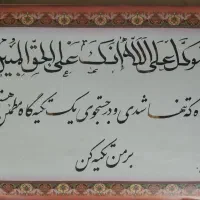 توكل على الله انك على الحق المبين
که تنها شدی و در جستجوی یک تکیه گاه مطمئن
بر من تکیه کن